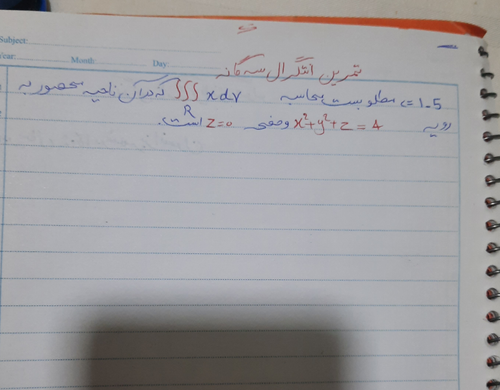 Subject:
Year: Month: Day:
تمرین انتگرال سه گانه
1.5 = مطلوبست محاسبه ∭ x dv که در آن ناحیه محصور به
R
رویه x²+y²+z = 4 و صفحه z=0 است.